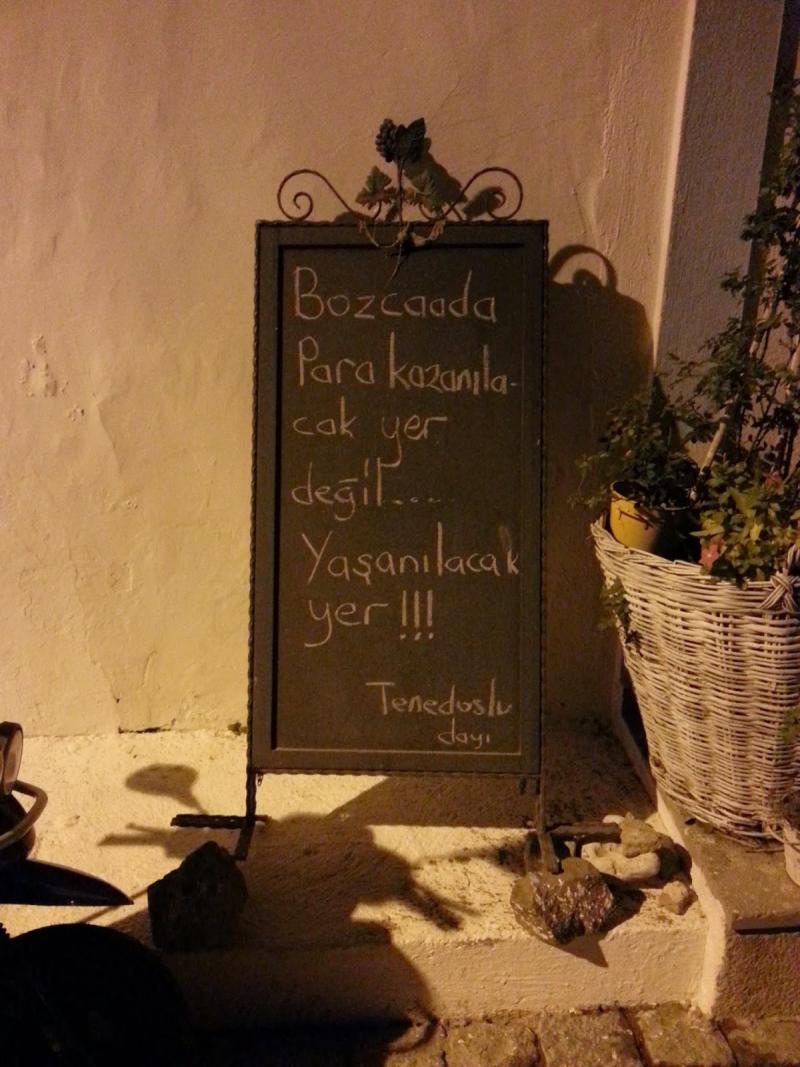 Bozcaada
Para kazanıla-
cak yer
değil....
Yaşanılacak
yer!!!
Tenedoslu
dayı